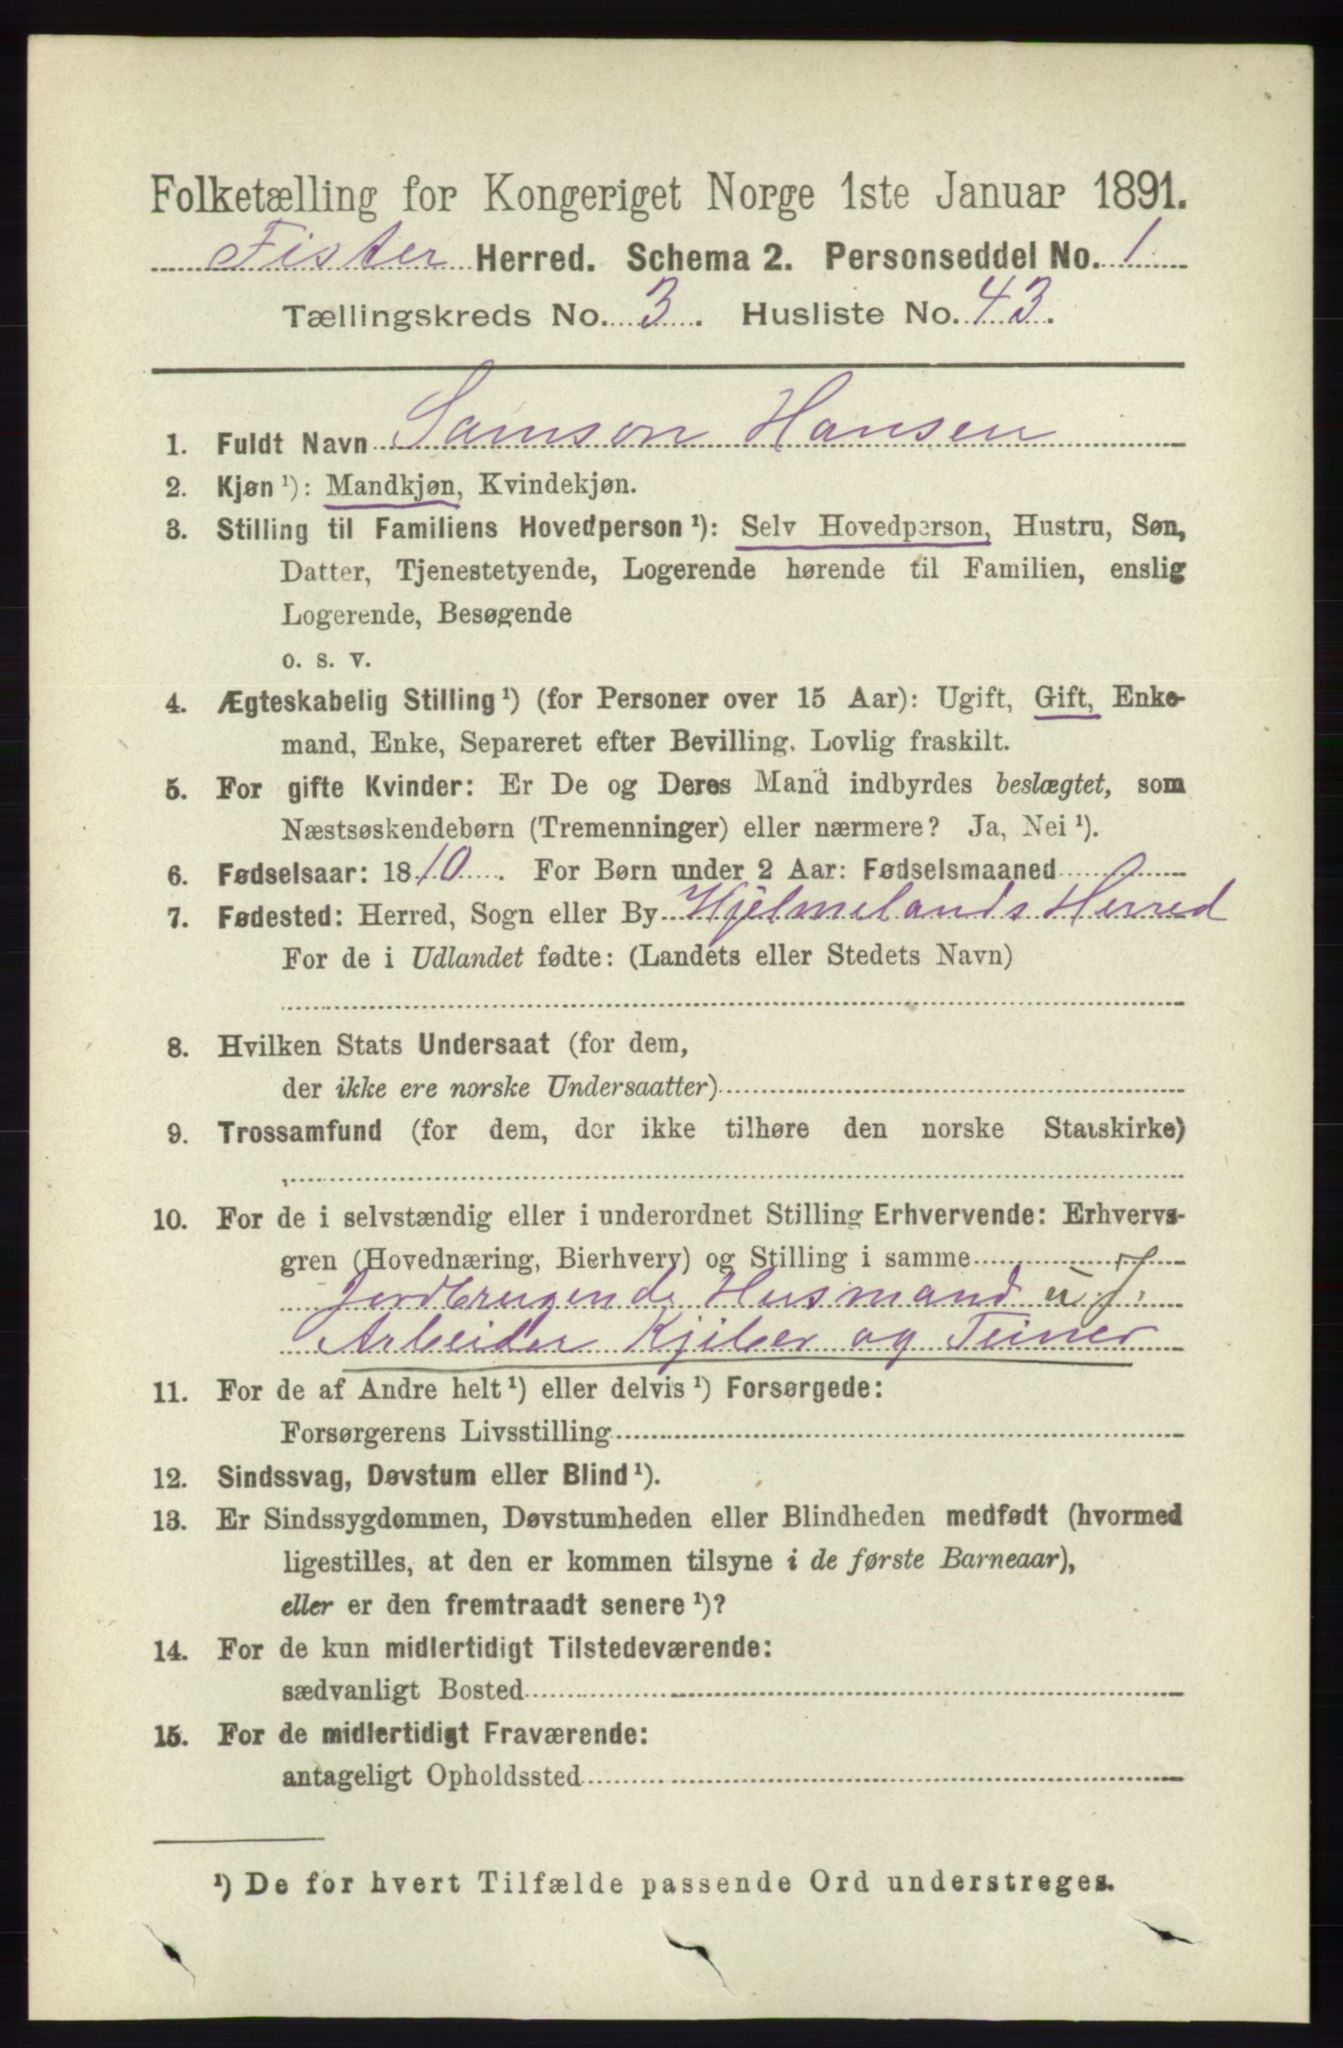 Folketælling for Kongeriget Norge 1ste Januar 1891.
Fister Herred. Schema 2. Personseddel No. 1
Tællingskreds No. 3. Husliste No. 43.
1. Fuldt Navn Samson Hansen
2. Kjøn ¹): Mandkjøn, Kvindekjøn.
3. Stilling til Familiens Hovedperson ¹): Selv Hovedperson, Hustru, Søn,
Datter, Tjenestetyende, Logerende hørende til Familien, enslig
Logerende, Besøgende
o. s. v.
4. Ægteskabelig Stilling ¹) (for Personer over 15 Aar): Ugift, Gift, Enke-
mand, Enke, Separeret efter Bevilling. Lovlig fraskilt.
5. For gifte Kvinder: Er De og Deres Mand indbyrdes beslægtet, som
Næstsøskendebørn (Tremenninger) eller nærmere? Ja, Nei ¹).
6. Fødselsaar: 1810. For Børn under 2 Aar: Fødselsmaaned
7. Fødested: Herred, Sogn eller By Hjelmelands Herred
For de i Udlandet fødte: (Landets eller Stedets Navn)
8. Hvilken Stats Undersaat (for dem,
der ikke ere norske Undersaatter)
9. Trossamfund (for dem, der ikke tilhøre den norske Statskirke)
10. For de i selvstændig eller i underordnet Stilling Erhvervende: Erhvervs-
gren (Hovednæring, Bierhverv) og Stilling i samme
Jordbrugende Husmand u J.
Arbeider Kjiber og Teiner
11. For de af Andre helt ¹) eller delvis ¹) Forsørgede:
Forsørgerens Livsstilling
12. Sindssvag, Døvstum eller Blind ¹).
13. Er Sindssygdommen, Døvstumheden eller Blindheden medfødt (hvormed
ligestilles, at den er kommen tilsyne i de første Barneaar),
eller er den fremtraadt senere ¹)?
14. For de kun midlertidigt Tilstedeværende:
sædvanligt Bosted
15. For de midlertidigt Fraværende:
antageligt Opholdssted
¹) De for hvert Tilfælde passende Ord understreges.